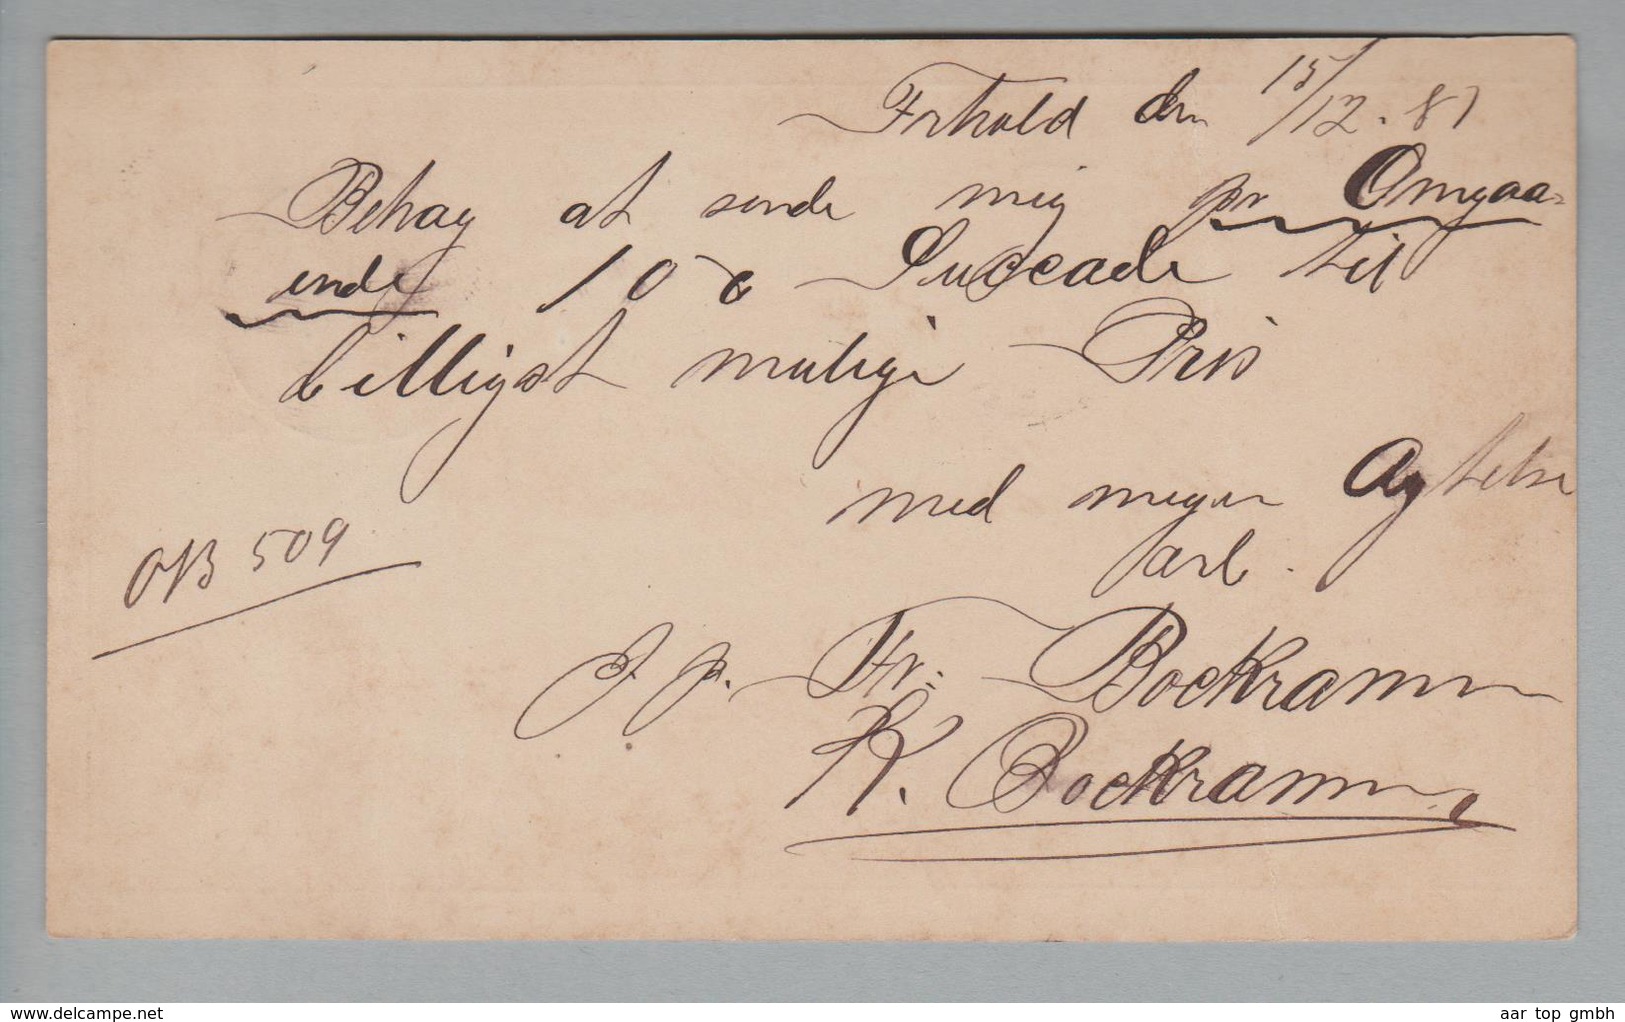 Frhald den 15/12. 87
Behag at sende mig pr Omgaa-
ende 10 ℔ Succade til
billigst mulige Pris
med megen Agtelse
arb.
OB 509
p. Fr: Bockramm
K. Bockramm
aar top gmbh
www.delcampe.net